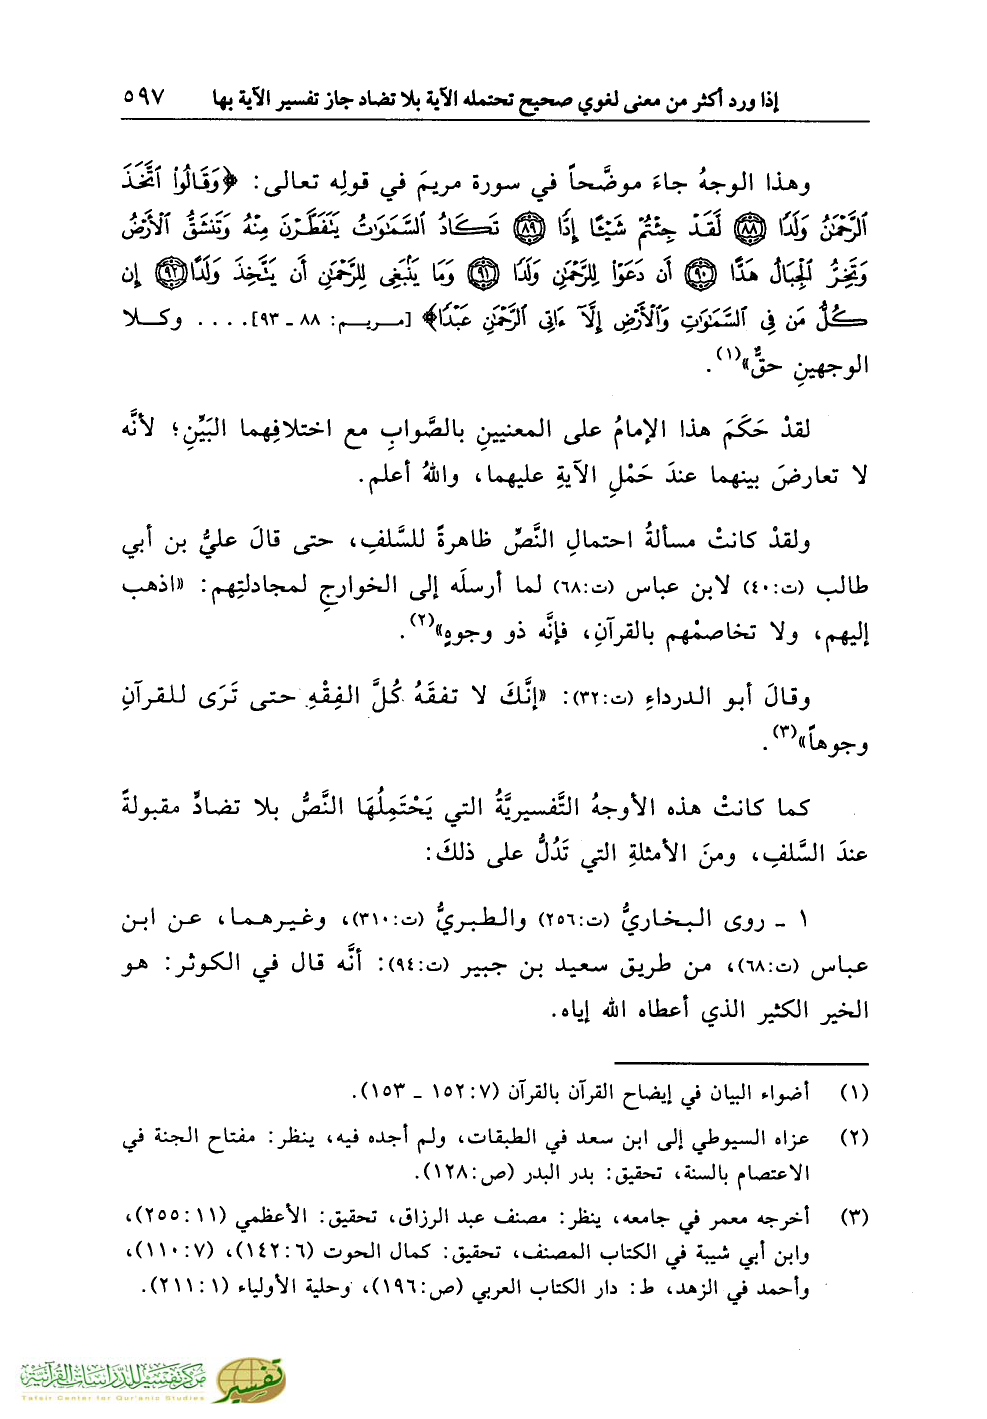 إذا ورد أكثر من معنى لغوي صحيح تحتمله الآية بلا تضاد جاز تفسير الآية بها ٥٩٧
وهذا الوجهُ جاءَ موضَّحاً في سورة مريمَ في قولِه تعالى: ﴿وَقَالُوا۟ ٱتَّخَذَ
ٱلرَّحْمَٰنُ وَلَدًا ﴿٨٨﴾ لَّقَدْ جِئْتُمْ شَيْـًٔا إِدًّا ﴿٨٩﴾ تَكَادُ ٱلسَّمَٰوَٰتُ يَتَفَطَّرْنَ مِنْهُ وَتَنشَقُّ ٱلْأَرْضُ
وَتَخِرُّ ٱلْجِبَالُ هَدًّا ﴿٩٠﴾ أَن دَعَوْا۟ لِلرَّحْمَٰنِ وَلَدًا ﴿٩١﴾ وَمَا يَنۢبَغِى لِلرَّحْمَٰنِ أَن يَتَّخِذَ وَلَدًا ﴿٩٢﴾ إِن
كُلُّ مَن فِى ٱلسَّمَٰوَٰتِ وَٱلْأَرْضِ إِلَّآ ءَاتِى ٱلرَّحْمَٰنِ عَبْدًا﴾ [مريم: ٨٨ - ٩٣].... وكلا
الوجهينِ حقٌّ»(١).
لقدْ حَكَمَ هذا الإمامُ على المعنيينِ بالصَّوابِ مع اختلافِهما البَيِّنِ؛ لأنَّه
لا تعارضَ بينهما عندَ حَمْلِ الآيةِ عليهما، واللهُ أعلم.
ولقدْ كانتْ مسألةُ احتمالِ النَّصِّ ظاهرةً للسَّلفِ، حتى قالَ عليُّ بن أبي
طالب (ت:٤٠) لابن عباس (ت:٦٨) لما أرسلَه إلى الخوارجِ لمجادلتِهم: «اذهب
إليهم، ولا تخاصمْهم بالقرآنِ، فإنَّه ذو وجوهٍ»(٢).
وقالَ أبو الدرداءِ (ت:٣٢): «إنَّكَ لا تفقَهُ كُلَّ الفِقْهِ حتى تَرَى للقرآنِ
وجوهاً»(٣).
كما كانتْ هذه الأوجهُ التَّفسيريَّةُ التي يَحْتَمِلُهَا النَّصُّ بلا تضادٍّ مقبولةً
عندَ السَّلفِ، ومنَ الأمثلةِ التي تَدُلُّ على ذلكَ:
١ - روى البخاريُّ (ت:٢٥٦) والطبريُّ (ت:٣١٠)، وغيرهما، عن ابن
عباس (ت:٦٨)، من طريق سعيد بن جبير (ت:٩٤): أنَّه قال في الكوثر: هو
الخير الكثير الذي أعطاه الله إياه.
(١) أضواء البيان في إيضاح القرآن بالقرآن (٧: ١٥٢ - ١٥٣).
(٢) عزاه السيوطي إلى ابن سعد في الطبقات، ولم أجده فيه، ينظر: مفتاح الجنة في
الاعتصام بالسنة، تحقيق: بدر البدر (ص:١٢٨).
(٣) أخرجه معمر في جامعه، ينظر: مصنف عبد الرزاق، تحقيق: الأعظمي (١١: ٢٥٥)،
وابن أبي شيبة في الكتاب المصنف، تحقيق: كمال الحوت (٦: ١٤٢)، (٧: ١١٠)،
وأحمد في الزهد، ط: دار الكتاب العربي (ص:١٩٦)، وحلية الأولياء (١: ٢١١).
تفسير
مركز تفسير للدراسات القرآنية
Tafsir Center for Qur'anic Studies